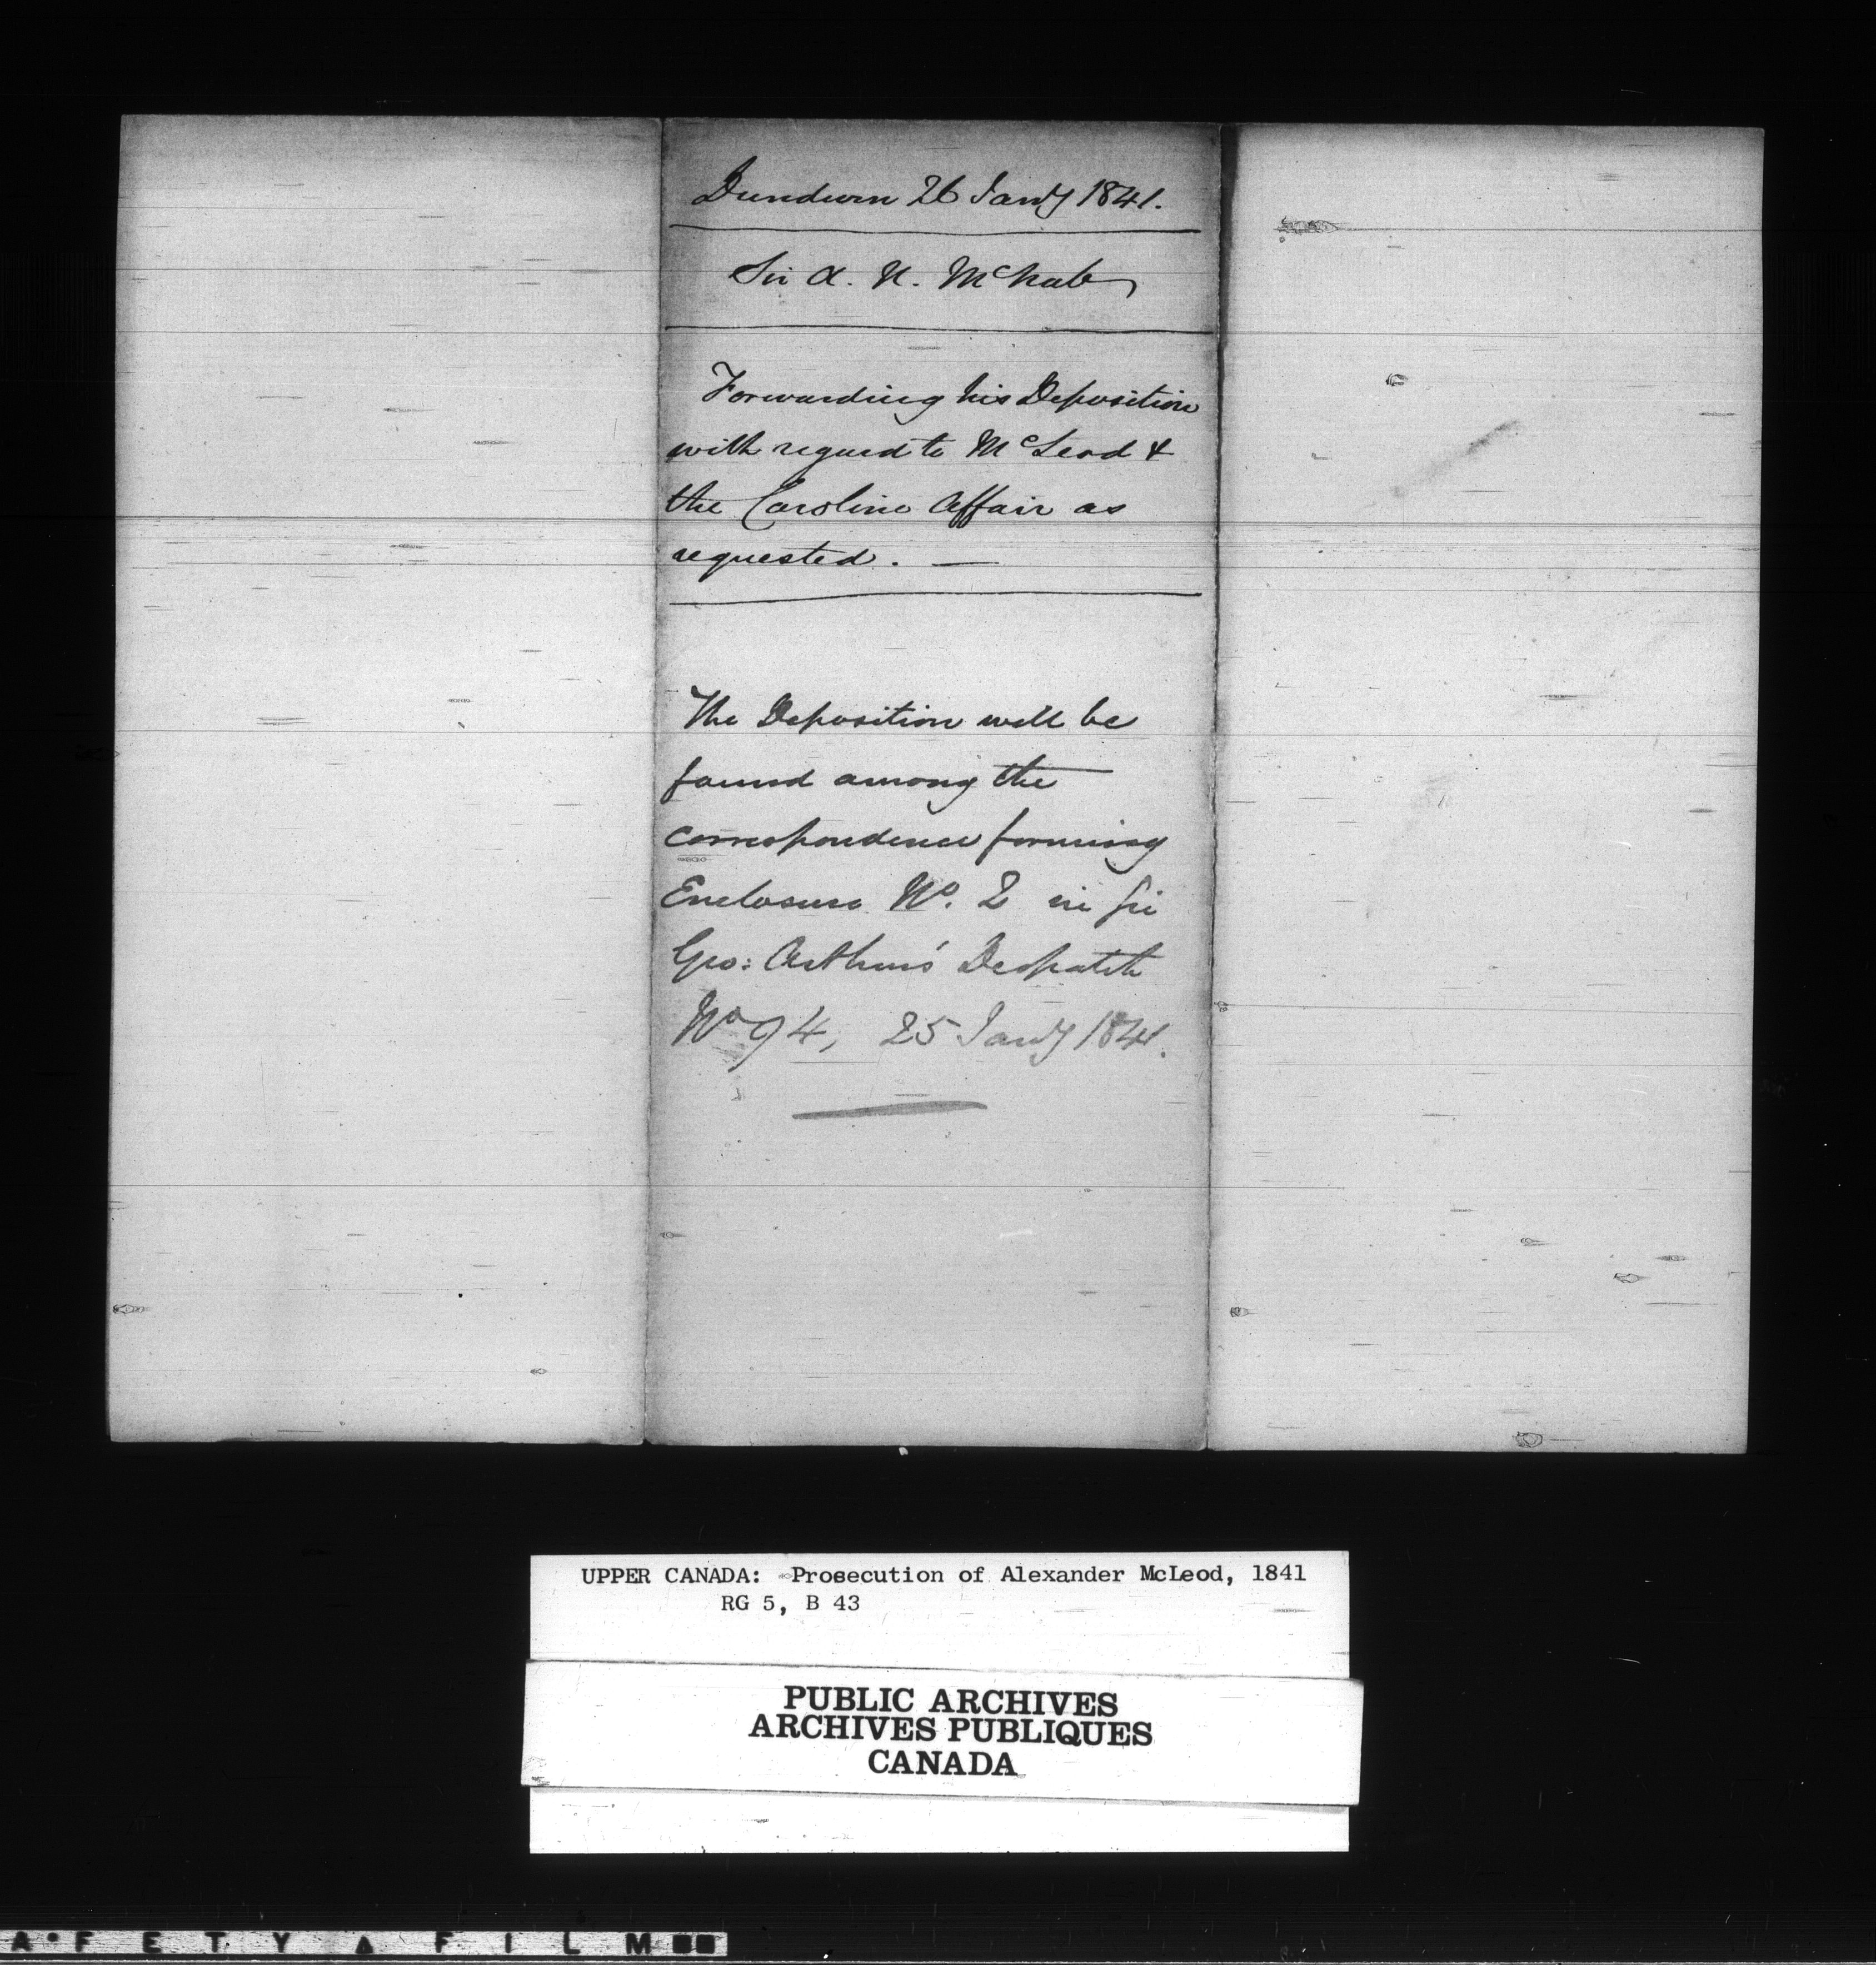 Dundurn 26 Jany 1841.
Sir A. N. McNab
Forwarding his Deposition
with regard to McLeod &
the Caroline Affair as
requested. —
The Deposition will be
found among the
correspondence forming
Enclosure No. 2 in Sir
Geo: Arthur's Despatch
No 94, 25 Jany 1841.
UPPER CANADA: Prosecution of Alexander McLeod, 1841
RG 5, B 43
PUBLIC ARCHIVES
ARCHIVES PUBLIQUES
CANADA
AFETY FILM